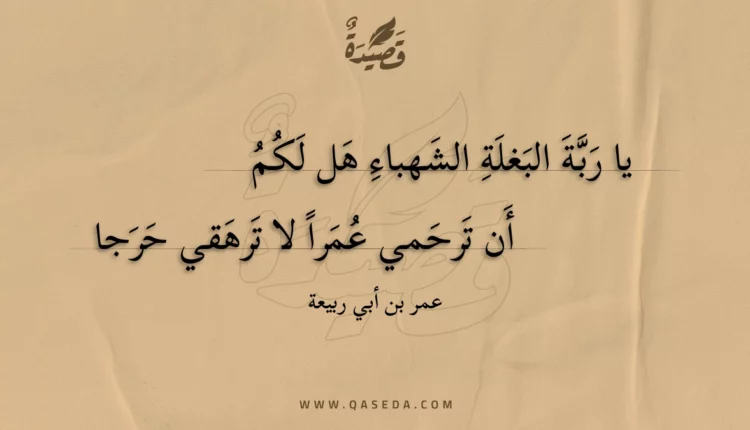 قَصِيدَةٌ
يا رَبَّةَ البَغلَةِ الشَهباءِ هَل لَكُمُ
أَن تَرحَمي عُمَراً لا تَرهَقي حَرَجا
عمر بن أبي ربيعة
WWW.QASEDA.COM